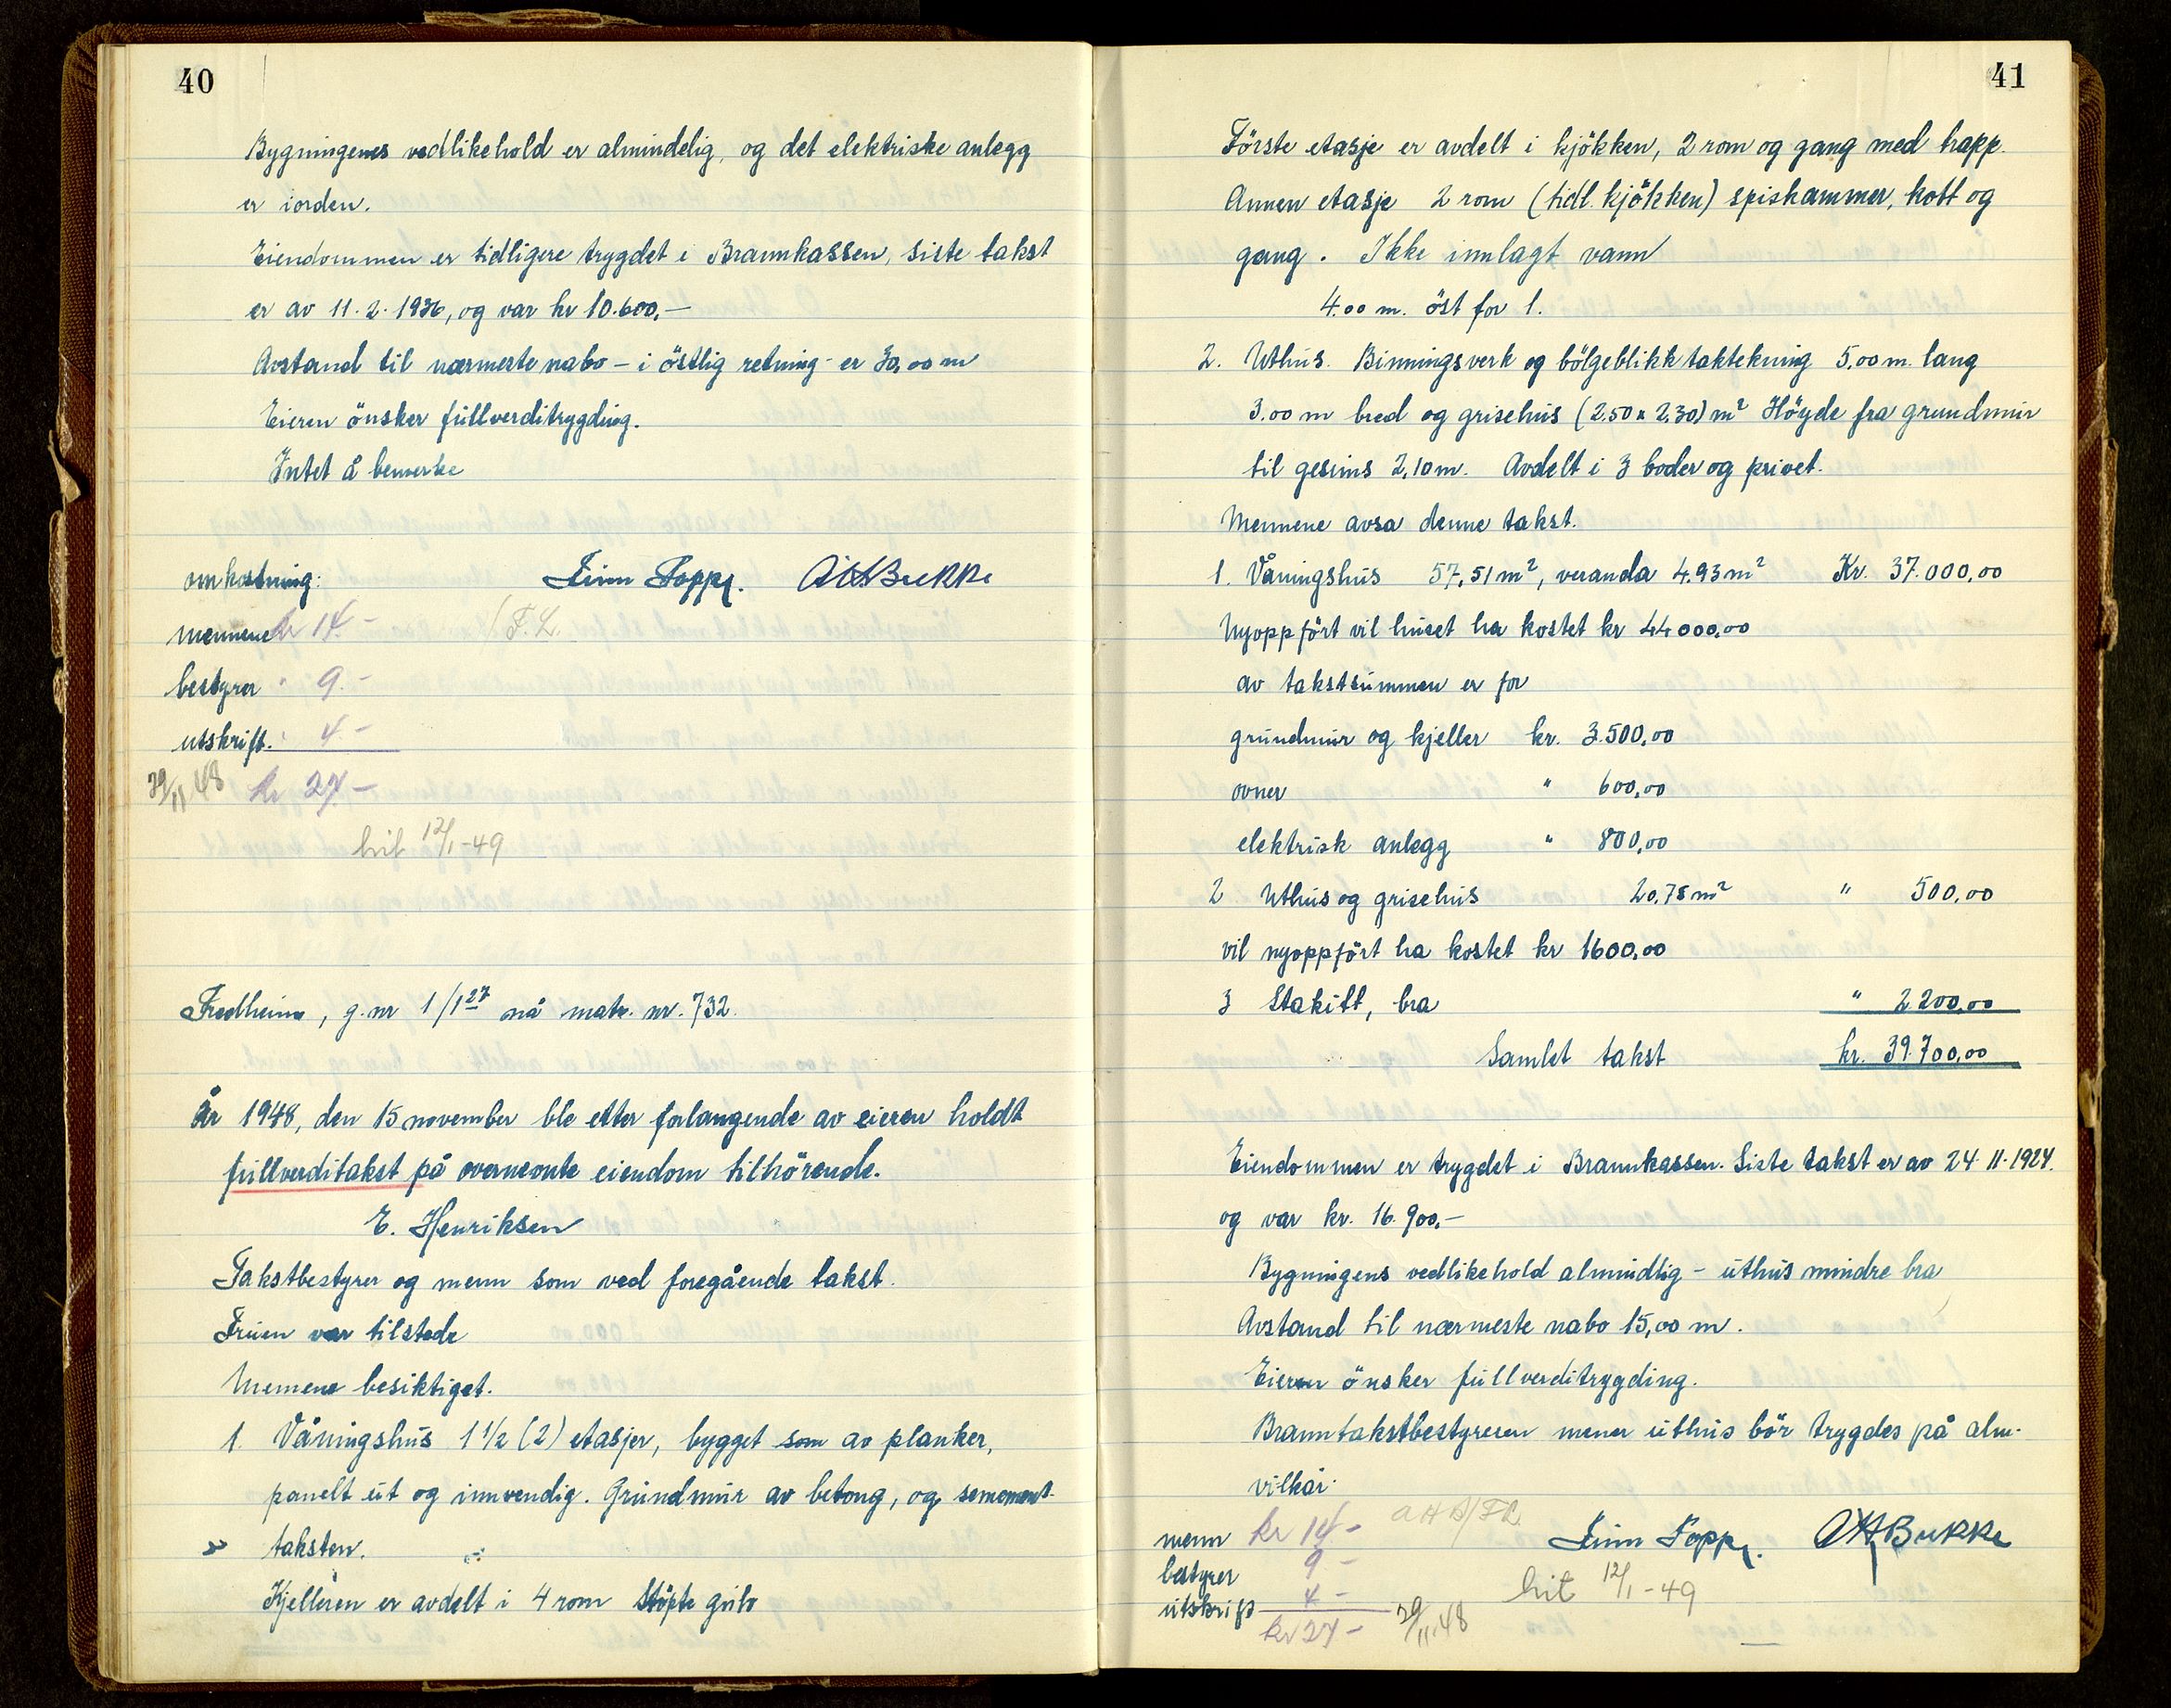 40
Bygningenes vedlikehold er almindelig, og det elektriske anlegg
er iorden.
Eiendommen er tidligere trygdet i Brannkassen, siste takst
er av 11.2.1936, og var kr 10.600,-
Avstand til nærmeste nabo - i östlig retning - er 30,00 m
Eieren önsker fullverditrygding.
Intet å bemerke
Finn Popp. AHBukke
/F.L.
omkostning:
mennene kr 14.-
bestyrer " 9.-
utskrift. " 4.-
29/11 48 kr 27-
hit 12/1-49
Fredheim, g.nr 1/127 nå matr. nr. 732.
År 1948, den 15 november ble etter forlangende av eieren holdt
fullverditakst på overneonte eiendom tilhörende.
E. Henriksen
Takstbestyrer og menn som ved foregående takst.
Fruen var tilstede
Mennene besiktiget.
1. Våningshus 1 1/2 (2) etasjer, bygget som av planker,
panelt ut og innvendig. Grundmur av betong, og sement-
taksten.
Kjelleren er avdelt i 4 rom Stöpte gulv
41
Förste etasje er avdelt i kjökken, 2 rom og gang med trapp.
Annen etasje 2 rom (tidl. kjökken) spiskammer, kott og
gang. Ikke innlagt vann
4.00 m. öst for 1.
2. Uthus. Binningsverk og bölgeblikktaktekning 5,00 m. lang
3.00 m bred og grisehus (2.50 x 2,30) m² Höyde fra grundmur
til gesims 2,10 m. Avdelt i 3 boder og privet.
Mennene avsa denne takst.
1. Våningshus 57,51 m², veranda 4.93 m² Kr. 37.000,00
Nyoppfört vil huset ha kostet kr 44000,00
av takstsummen er for
grundmur og kjeller kr. 3.500,00
ovner " 600,00
elektrisk anlegg " 800,00
2 Uthus og grisehus 20,75 m² " 500,00
vil nyoppfört ha kostet kr 1600,00
3 Stakitt, bra " 2200,00
Samlet takst kr. 39.700,00
Eiendommen er trygdet i Brannkassen. Siste takst er av 24.11.1924.
og var kr. 16.900,-
Bygningens vedlikehold almindlig - uthus mindre bra
Avstand til nærmeste nabo 15,00 m.
Eieren önsker fullverditrygding.
Branntakstbestyreren mener uthus bör trygdes på alm.
vilkår.
AHB/FL
Finn Popp. AHBukke
menn kr 14.-
bestyrer 9-
utskrift 4-
kr 27- 29/11.48
hit 12/1-49